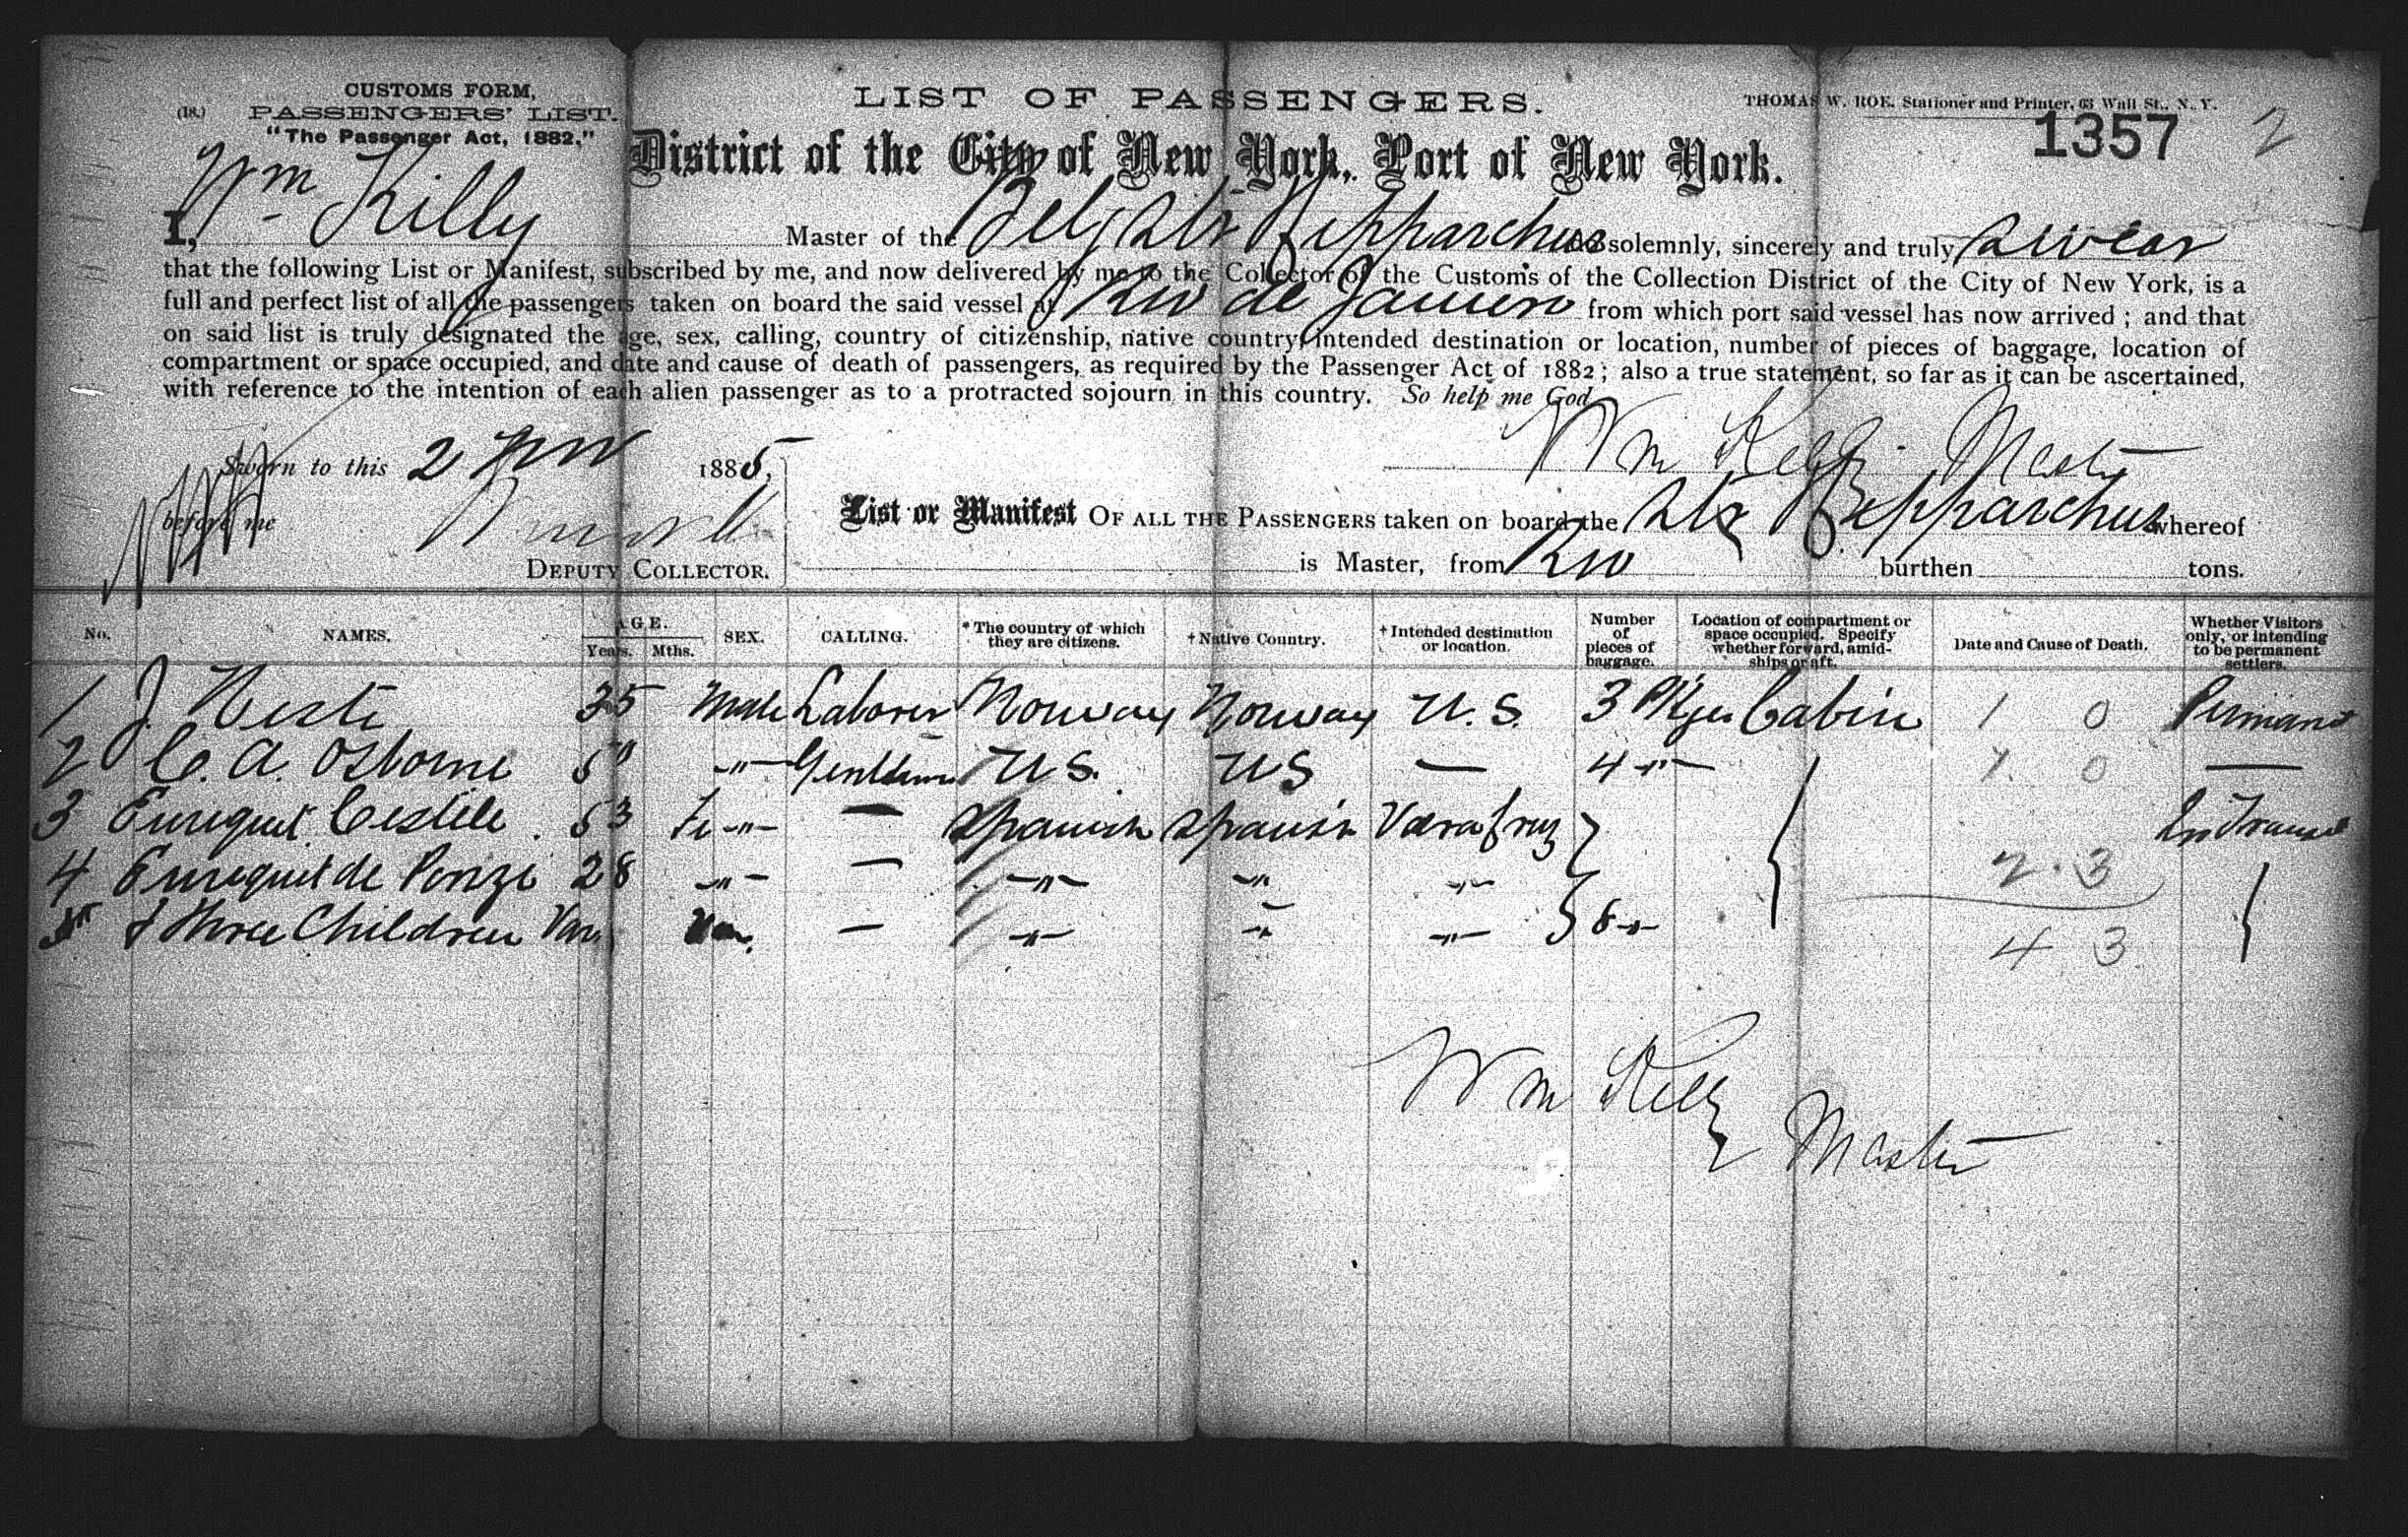 CUSTOMS FORM,
(18.) PASSENGERS' LIST.
"The Passenger Act, 1882."
LIST OF PASSENGERS.
THOMAS W. ROE, Stationer and Printer, 63 Wall St., N. Y.
1357 2
District of the City of New York, Port of New York.
I, Wm Killy Master of the Belg Str Hipparchus do solemnly, sincerely and truly swear
that the following List or Manifest, subscribed by me, and now delivered by me to the Collector of the Customs of the Collection District of the City of New York, is a
full and perfect list of all the passengers taken on board the said vessel at Rio de Janeiro from which port said vessel has now arrived; and that
on said list is truly designated the age, sex, calling, country of citizenship, native country, intended destination or location, number of pieces of baggage, location of
compartment or space occupied, and date and cause of death of passengers, as required by the Passenger Act of 1882; also a true statement, so far as it can be ascertained,
with reference to the intention of each alien passenger as to a protracted sojourn in this country. So help me God
Wm Kelly Master
Sworn to this 2 1885,
before me
DEPUTY COLLECTOR.
List or Manifest OF ALL THE PASSENGERS taken on board the Str Hipparchus whereof
is Master, from Rio burthen tons.
No. NAMES. AGE. Years. Mths. SEX. CALLING. * The country of which they are citizens. † Native Country. ‡ Intended destination or location. Number of pieces of baggage. Location of compartment or space occupied. Specify whether forward, amid-ships or aft. Date and Cause of Death. Whether Visitors only, or intending to be permanent settlers.
1 J. Neste 35 Male Laborer Norway Norway U.S. 3 Pkges Cabin 1 0
2 C. A. Osborne 50 -"- Gentleman U S. U S — 4 -"- 1. 0 —
3 53 Fe -"- — Spanish Spanish In Transit
4 de 28 -"- — -"- -"- -"- 2 . 3
5 & three Children Van — -"- -"- -"- 8 -"- 4 3
Wm Kelly
Master